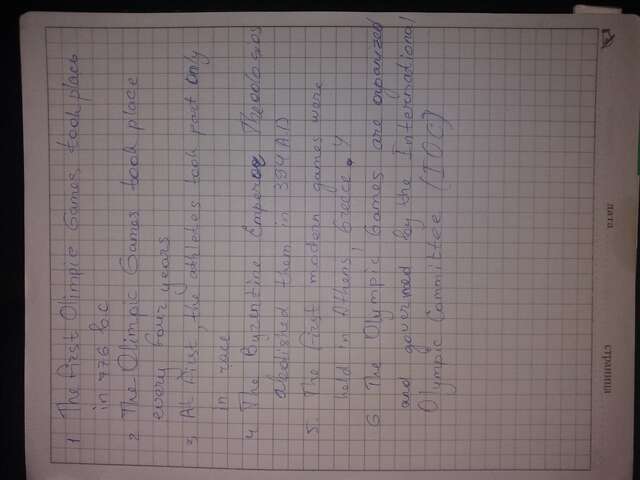 1 The first Olimpic Games took place
in 776 b.c
2 The Olimpic Games took place
every four years
3 At first, the athletes took part only
in race
4 The Byzentine Emperor Theodosios
abolished them in 394 AD
5. The first modern games were
held in Athens, Greece.
6 The Olympic Games are organized
and governed by the International
Olympic Committee (IOC)
дата
страница